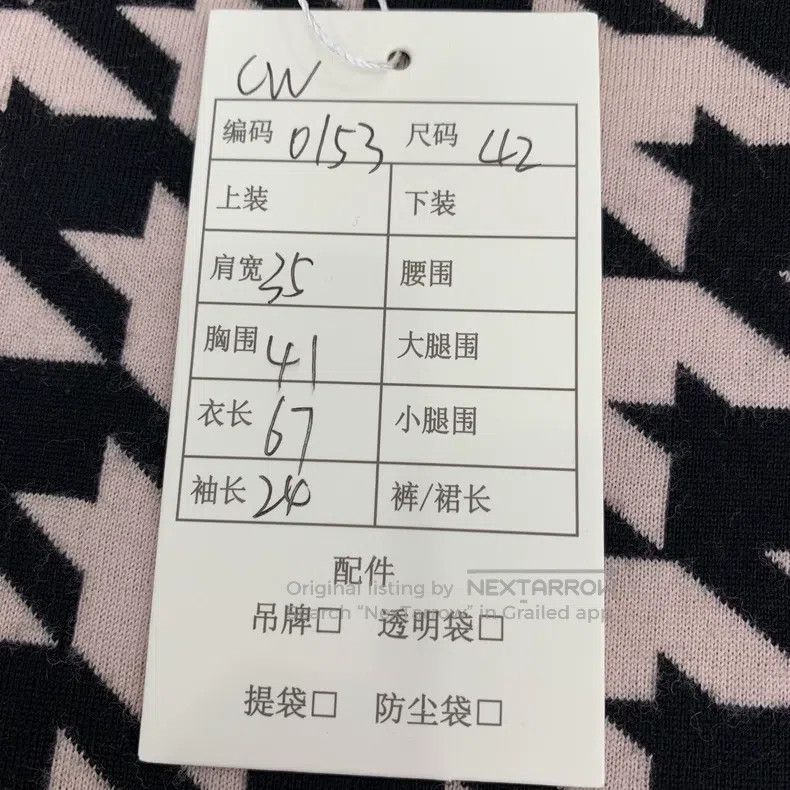 CW
编码 0153 尺码 42
上装 下装
肩宽 35 腰围
胸围 41 大腿围
衣长 67 小腿围
袖长 24 裤/裙长
配件
Original listing by NEXTARROW
Search “NexTarrow” in Grailed app
吊牌□ 透明袋□
提袋□ 防尘袋□